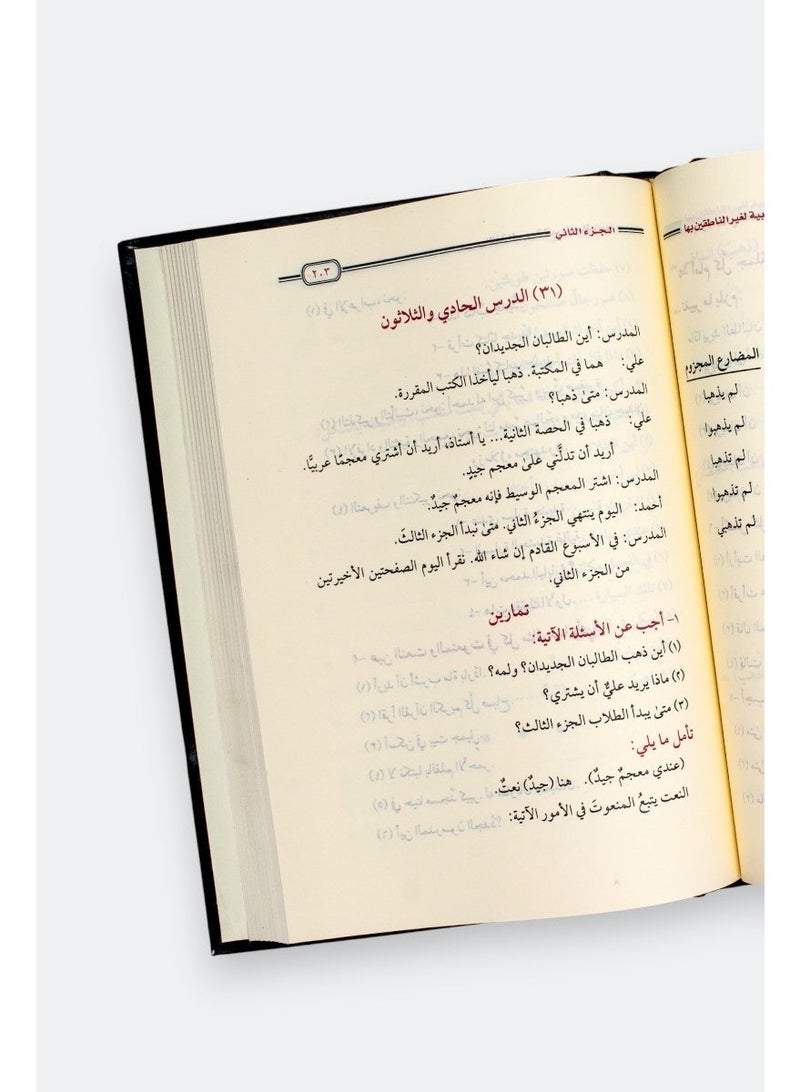 بية لغير الناطقين بها
المضارع المجزوم
لم يذهبا
لم يذهبوا
لم تذهبا
لم تذهبوا
لم تذهبي
الجزء الثاني
٢٠٣
(٣١) الدرس الحادي والثلاثون
المدرس: أين الطالبان الجديدان؟
علي: هما في المكتبة. ذهبا ليأخذا الكتب المقررة.
المدرس: متىٰ ذهبا؟
علي: ذهبا في الحصة الثانية... يا أستاذ، أريد أن أشتري معجمًا عربيًّا.
أريد أن تدلَّني علىٰ معجم جيدٍ.
المدرس: اشتر المعجم الوسيط فإنه معجمٌ جيدٌ.
أحمد: اليوم ينتهي الجزءُ الثاني. متىٰ نبدأ الجزء الثالثَ.
المدرس: في الأسبوع القادم إن شاء الله. نقرأ اليوم الصفحتين الأخيرتين
من الجزء الثاني.
تمارين
١- أجب عن الأسئلة الآتية:
(١) أين ذهب الطالبان الجديدان؟ ولمه؟
(٢) ماذا يريد عليٌّ أن يشتري؟
(٣) متىٰ يبدأ الطلاب الجزء الثالث؟
تأمل ما يلي:
(عندي معجمٌ جيدٌ). هنا (جيدٌ) نعتٌ.
النعت يتبعُ المنعوتَ في الأمور الآتية: